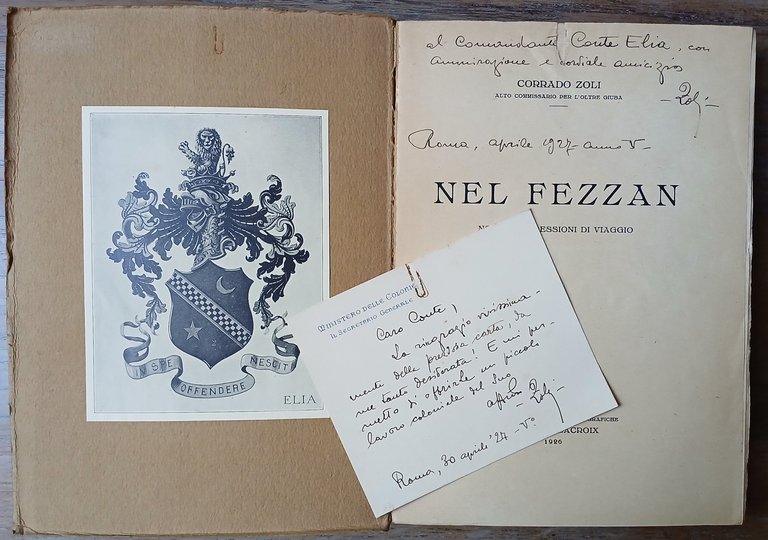 IN SPE
OFFENDERE
NESCIT
ELIA
al Comandante Conte Elia, con
ammirazione e cordiale amicizia
CORRADO ZOLI
ALTO COMMISSARIO PER L'OLTRE GIUBA
- Zoli -
Roma, aprile 1927 anno V-
NEL FEZZAN
ESSIONI DI VIAGGIO
MINISTERO DELLE COLONIE
IL SEGRETARIO GENERALE
Caro Conte,
La ringrazio vivissima-
mente della preziosa carta, da
me tanto desiderata! E mi per-
metto di offrirle un piccolo
lavoro coloniale del Suo
affmo Zoli-
Roma, 30 aprile '27 - Vº
GRAFICHE
LACROIX
1926